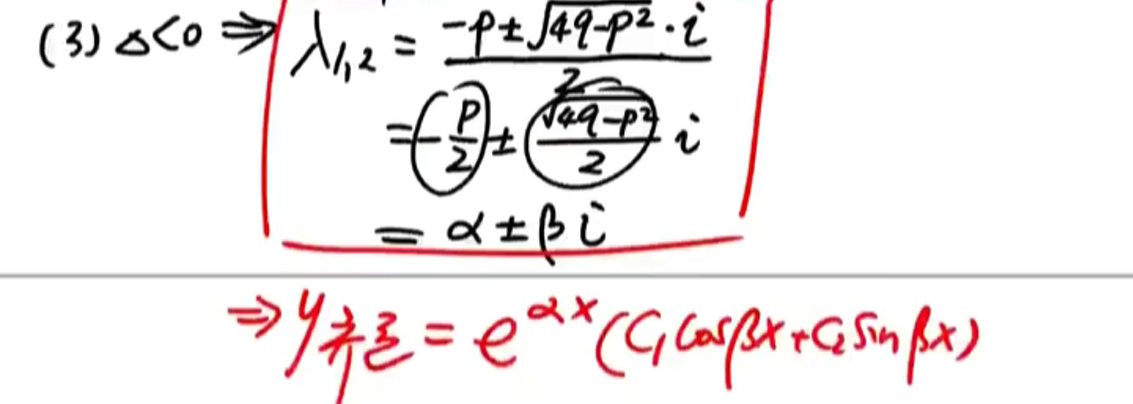 (3) Δ<0 ⇒ λ₁,₂ = (-p±√(4q-p²)·i)/2
= -p/2 ± √(4q-p²)/2 i
= α ± β i
⇒ y齐通 = e^{αx}(C₁cosβx+C₂sinβx)